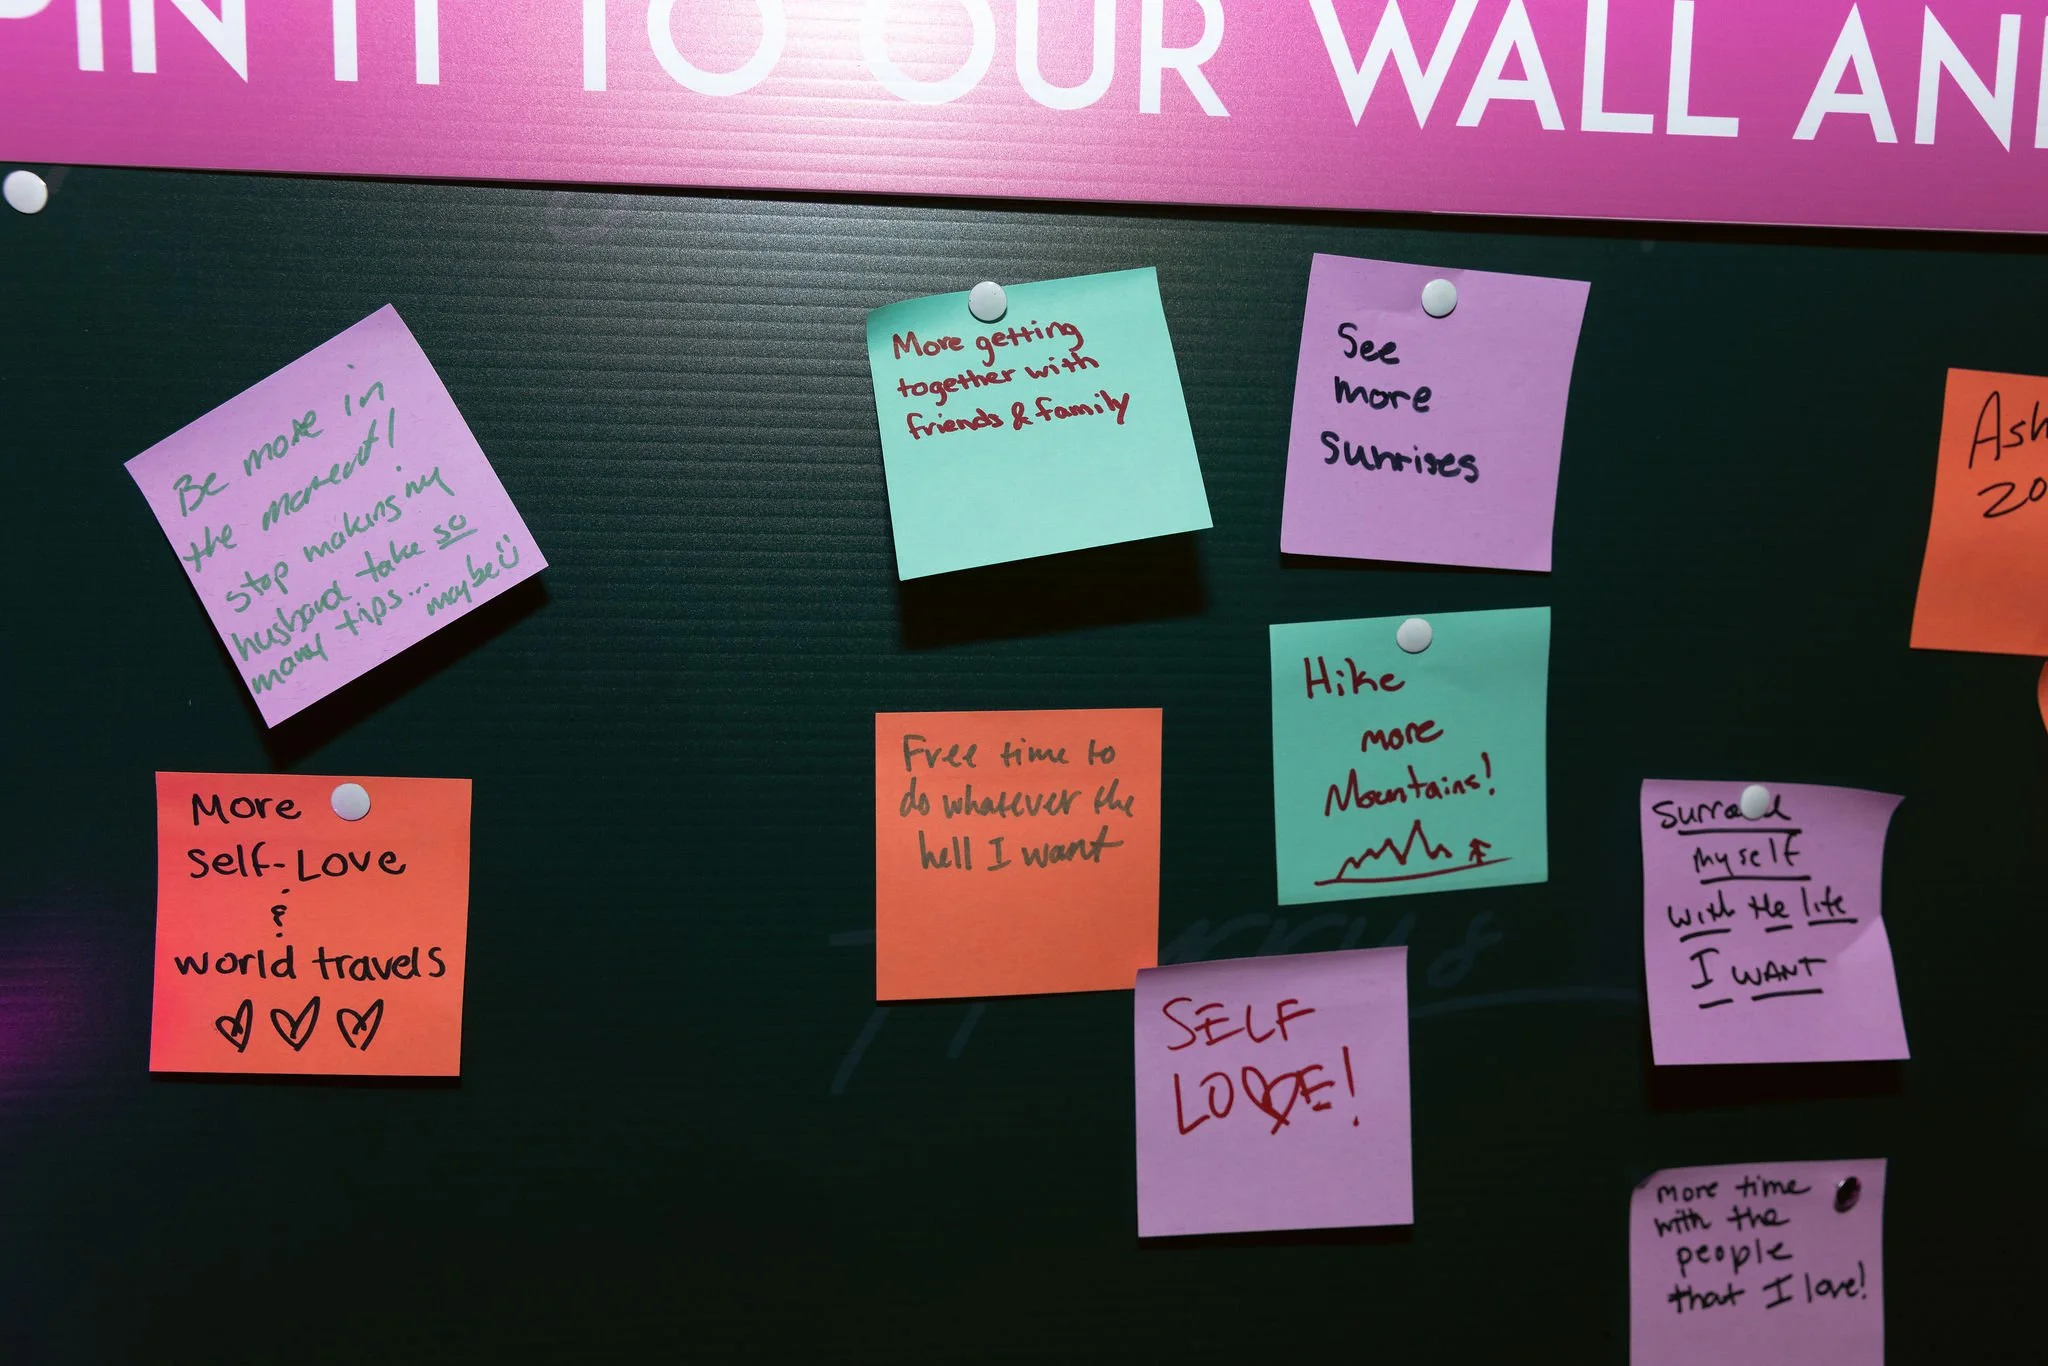 PIN IT TO OUR WALL AN
Be more in
the moment!
stop making my
husband take so
many tips... maybe
More getting
together with
friends & family
See
more
Sunrises
Ash
20
More
Self-Love
&
world travels
Free time to
do whatever the
hell I want
Hike
more
Mountains!
SELF
LOVE!
Surround
myself
with the life
I WANT
More time
with the
people
that I love!